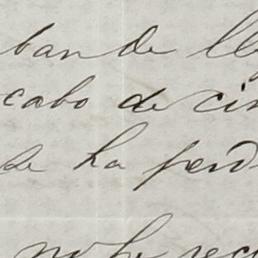 ban de lle
cabo de cin
se ha perd
no he rec